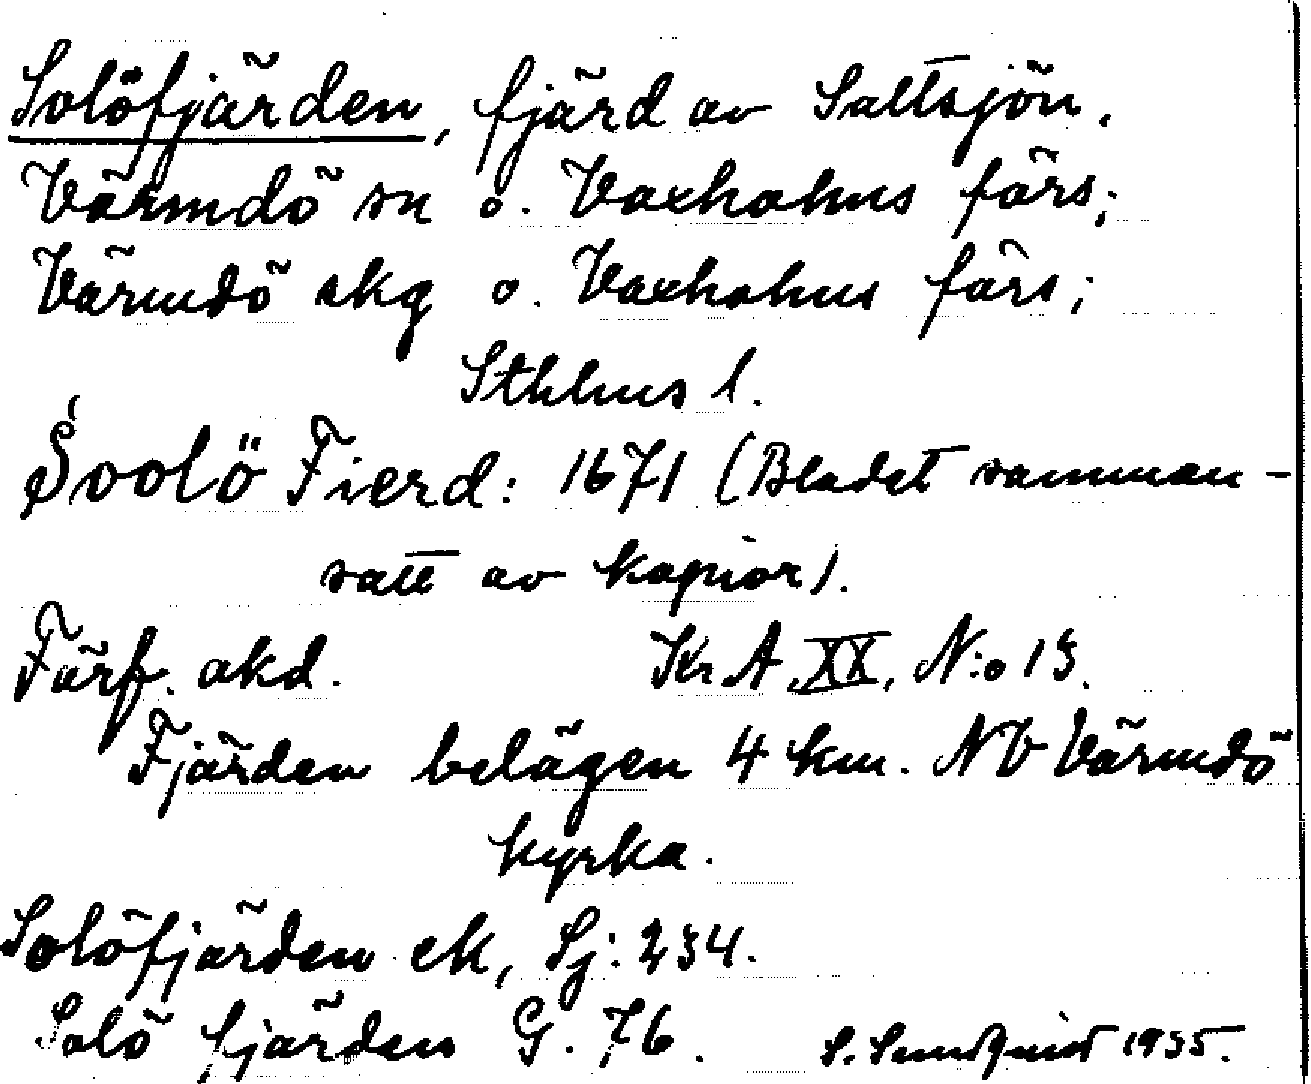 Solöfjärden, fjärd av Saltsjön.
Värmdö sn o. Vaxholms förs;
Värmdö skg o. Vaxholms förs;
Sthlms l.
Soolö Fierd: 1671 (Bladet samman-
satt av kopior).
Förf. okd. Kr A, XX, N:o 13.
Fjärden belägen 4 km. NV Värmdö
kyrka.
Solöfjärden ek, Sj: 234.
Solö fjärden G. 76. S. Sundquist 1935.